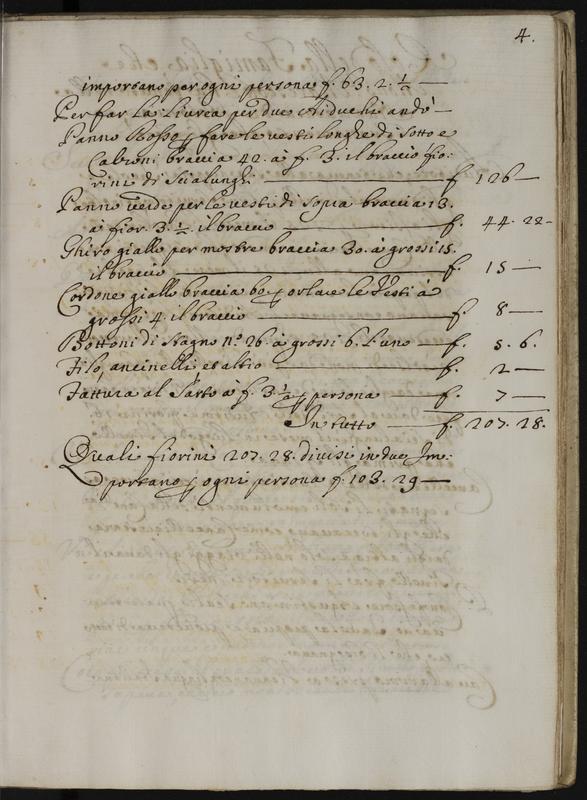 4.
importano per ogni persona f. 63. 2. ½ —
Per far La Livrea per due Aiduchi andò —
Panno Rosso p fare le vesti longhe di sotto e
Calzoni braccia 42. à f. 3. il braccio fio:
rini di Scialunghi — f. 126 —
Panno verde per le vesti di sopra braccia 13.
à fior. 3. ½. il braccio — f. 44. 22 —
Ghiro giallo per mostre braccia 30. à grossi 15.
il braccio — f. 15 —
Cordone giallo braccia 60 p orlare le Vesti à
grossi 4. il braccio — f. 8 —
Bottoni di Stagno nº. 26. à grossi 6. l'uno — f. 5. 6.
Filo, ancinelli et altro — f. 2 —
Fattura al Sarto à f. 3. ½ p persona — f. 7 —
In tutto — f. 207. 28.
Quali fiorini 207. 28. divisi in due Im:
portano p ogni persona f. 103. 29 —